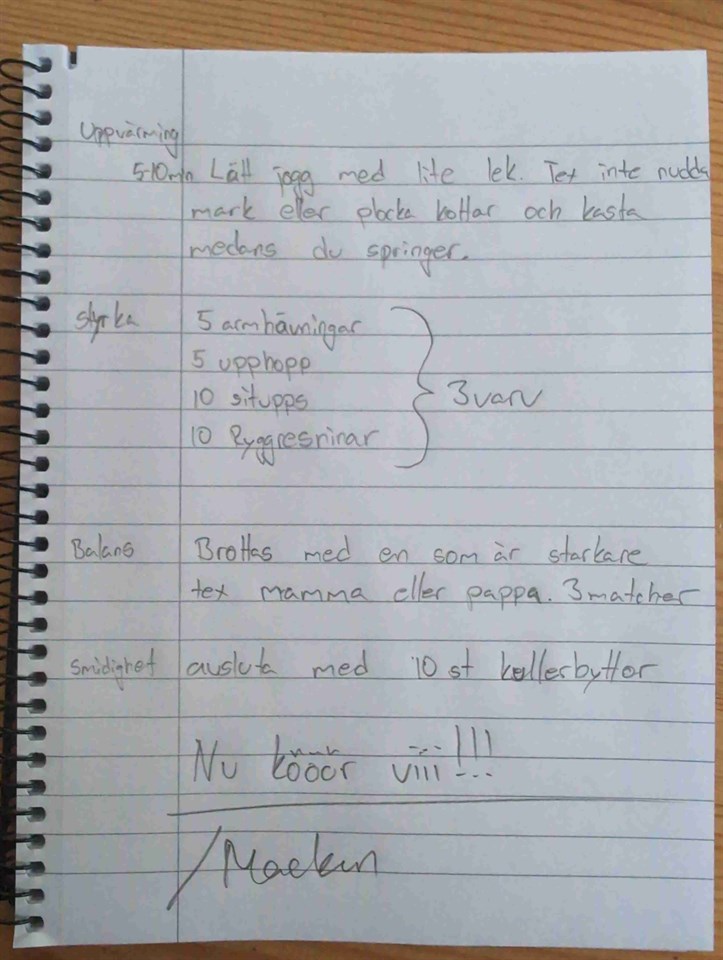 Uppvärming
5-10min Lätt jogg med lite lek. Tex inte nudda
mark eller plocka kottar och kasta
medans du springer.
Styrka 5 armhävningar
5 upphopp
10 situpps
10 Ryggresnirar
3 varv
Balans Brottas med en som är starkare
tex mamma eller pappa. 3 matcher
Smidighet avsluta med 10 st kullerbyttor
Nu kööör viii!!!